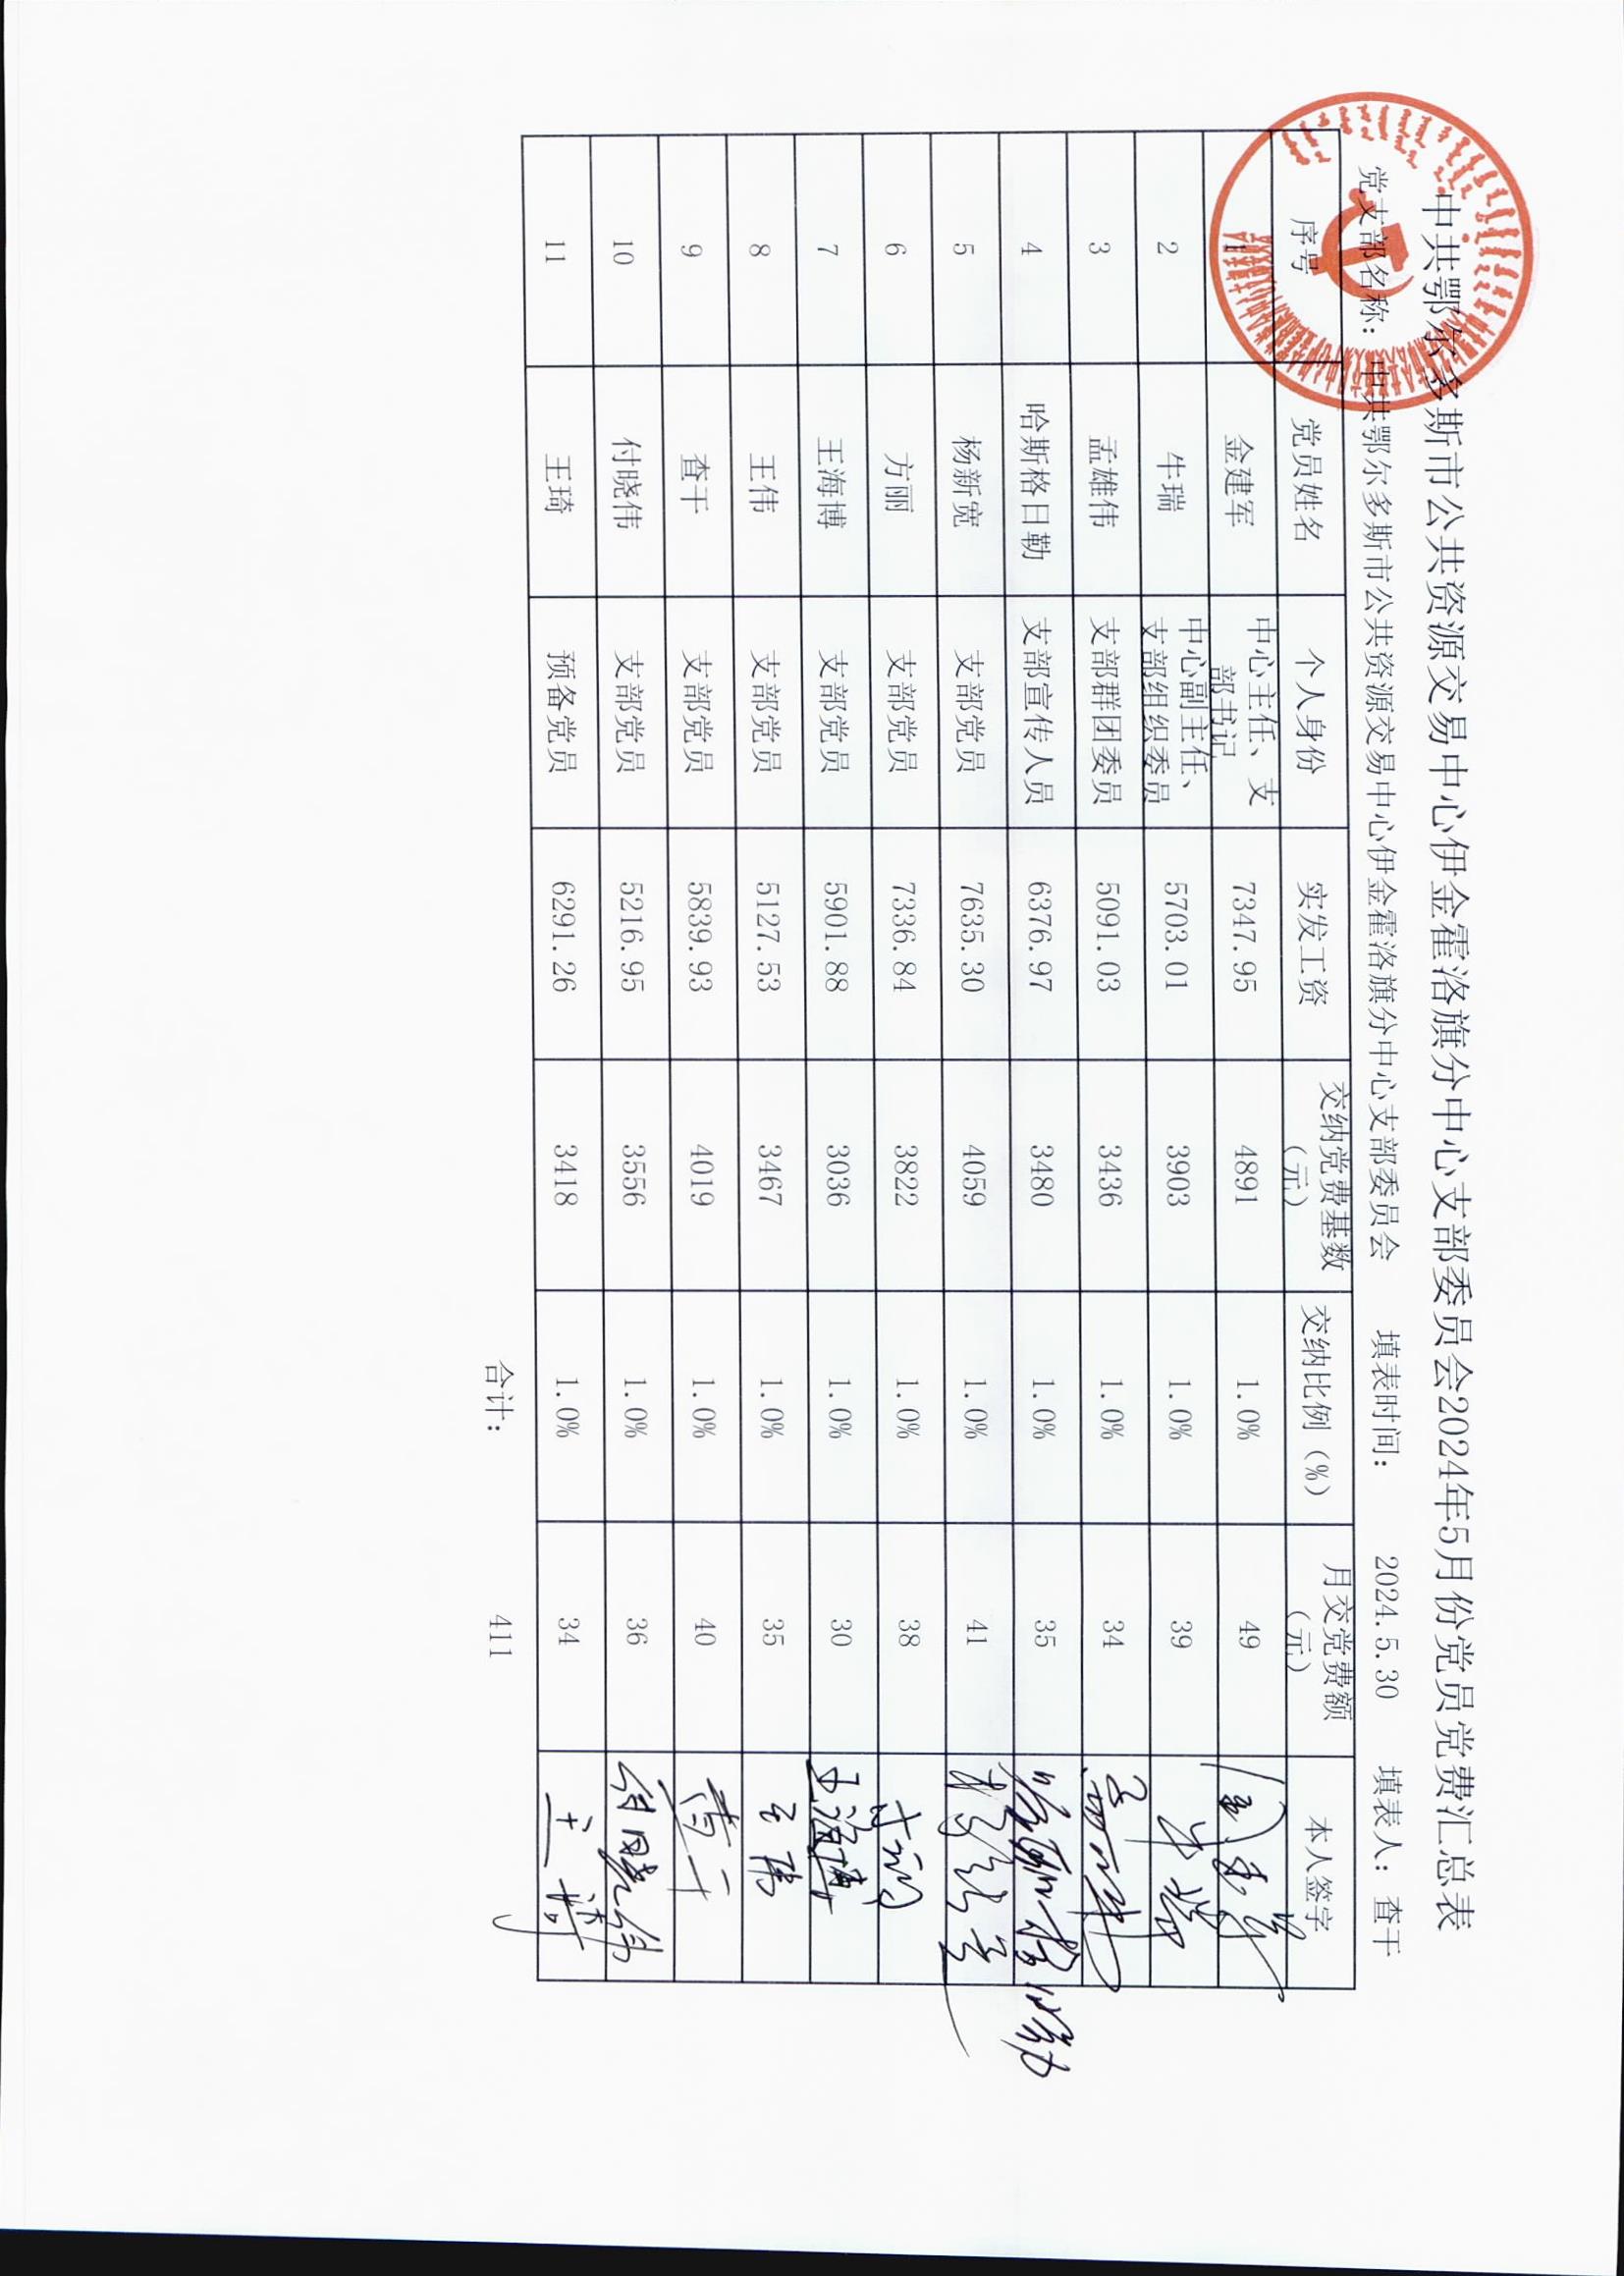 中共鄂尔多斯市公共资源交易中心伊金霍洛旗分中心支部委员会2024年5月份党员党费汇总表
党支部名称： 中共鄂尔多斯市公共资源交易中心伊金霍洛旗分中心支部委员会 填表时间： 2024.5.30 填表人：查干
序号 党员姓名 个人身份 实发工资 交纳党费基数（元） 交纳比例（%） 月交党费额（元） 本人签字
1 金建军 中心主任、支部书记 7347.95 4891 1.0% 49 金建军
2 牛瑞 中心副主任、支部组织委员 5703.01 3903 1.0% 39 牛瑞
3 孟雄伟 支部群团委员 5091.03 3436 1.0% 34 孟雄伟
4 哈斯格日勒 支部宣传人员 6376.97 3480 1.0% 35 哈斯格日勒
5 杨新宽 支部党员 7635.30 4059 1.0% 41 杨新宽
6 方丽 支部党员 7336.84 3822 1.0% 38 方丽
7 王海博 支部党员 5901.88 3036 1.0% 30 王海博
8 王伟 支部党员 5127.53 3467 1.0% 35 王伟
9 查干 支部党员 5839.93 4019 1.0% 40 查干
10 付晓伟 支部党员 5216.95 3556 1.0% 36 付晓伟
11 王琦 预备党员 6291.26 3418 1.0% 34 王琦
合计： 411